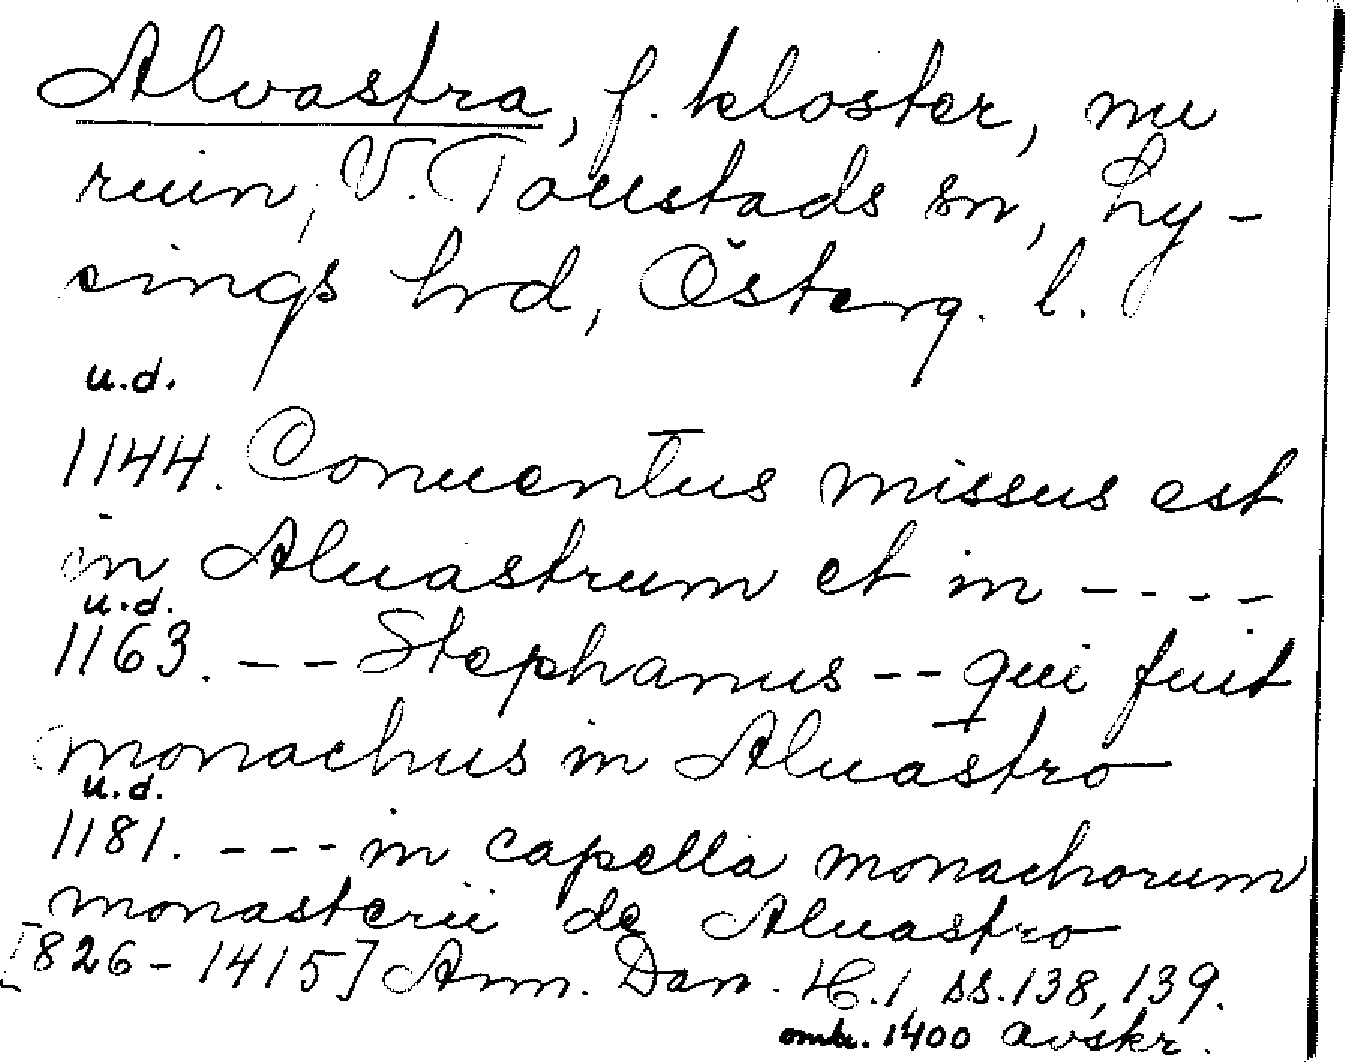 Alvastra, f. kloster, nu
ruin, V. Tollstads sn, Ly-
sings hrd, Österg. l.
u.d.
1144. Conuentus missus est
in Aluastrum et in ----
u.d.
1163. -- Stephanus -- qui fuit
monachus in Aluastro
u.d.
1181. --- in capella monachorum
monasterii de Aluastro
[826-1415] Ann. Dan. H. 1 ss. 138, 139.
omkr. 1400 avskr.